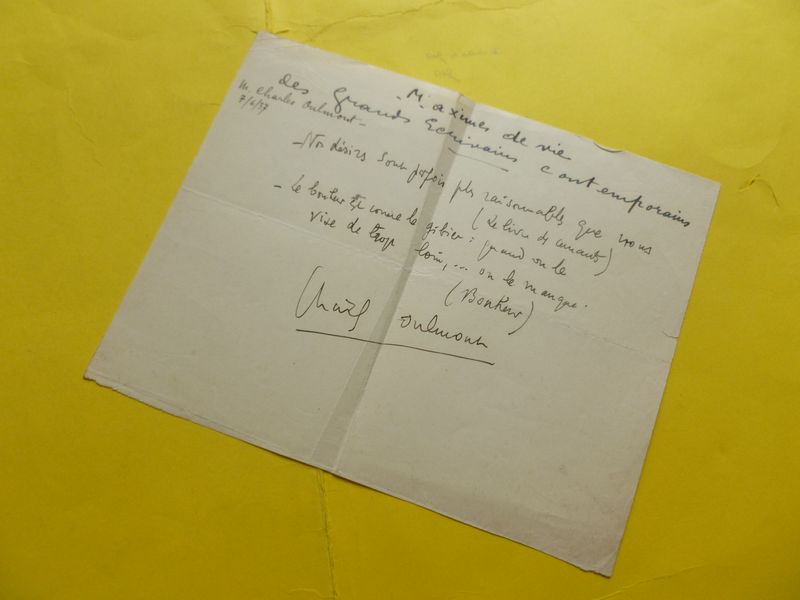 Maximes de vie
des grands Ecrivains contemporains
M. Charles Oulmont -
7/6/57
- Nos désirs sont parfois plus raisonnables que nous
(Le livre des amants)
- Le bonheur est comme le gibier : quand on le
vise de trop loin, ... on le manque.
(Bonheur)
Charles Oulmont